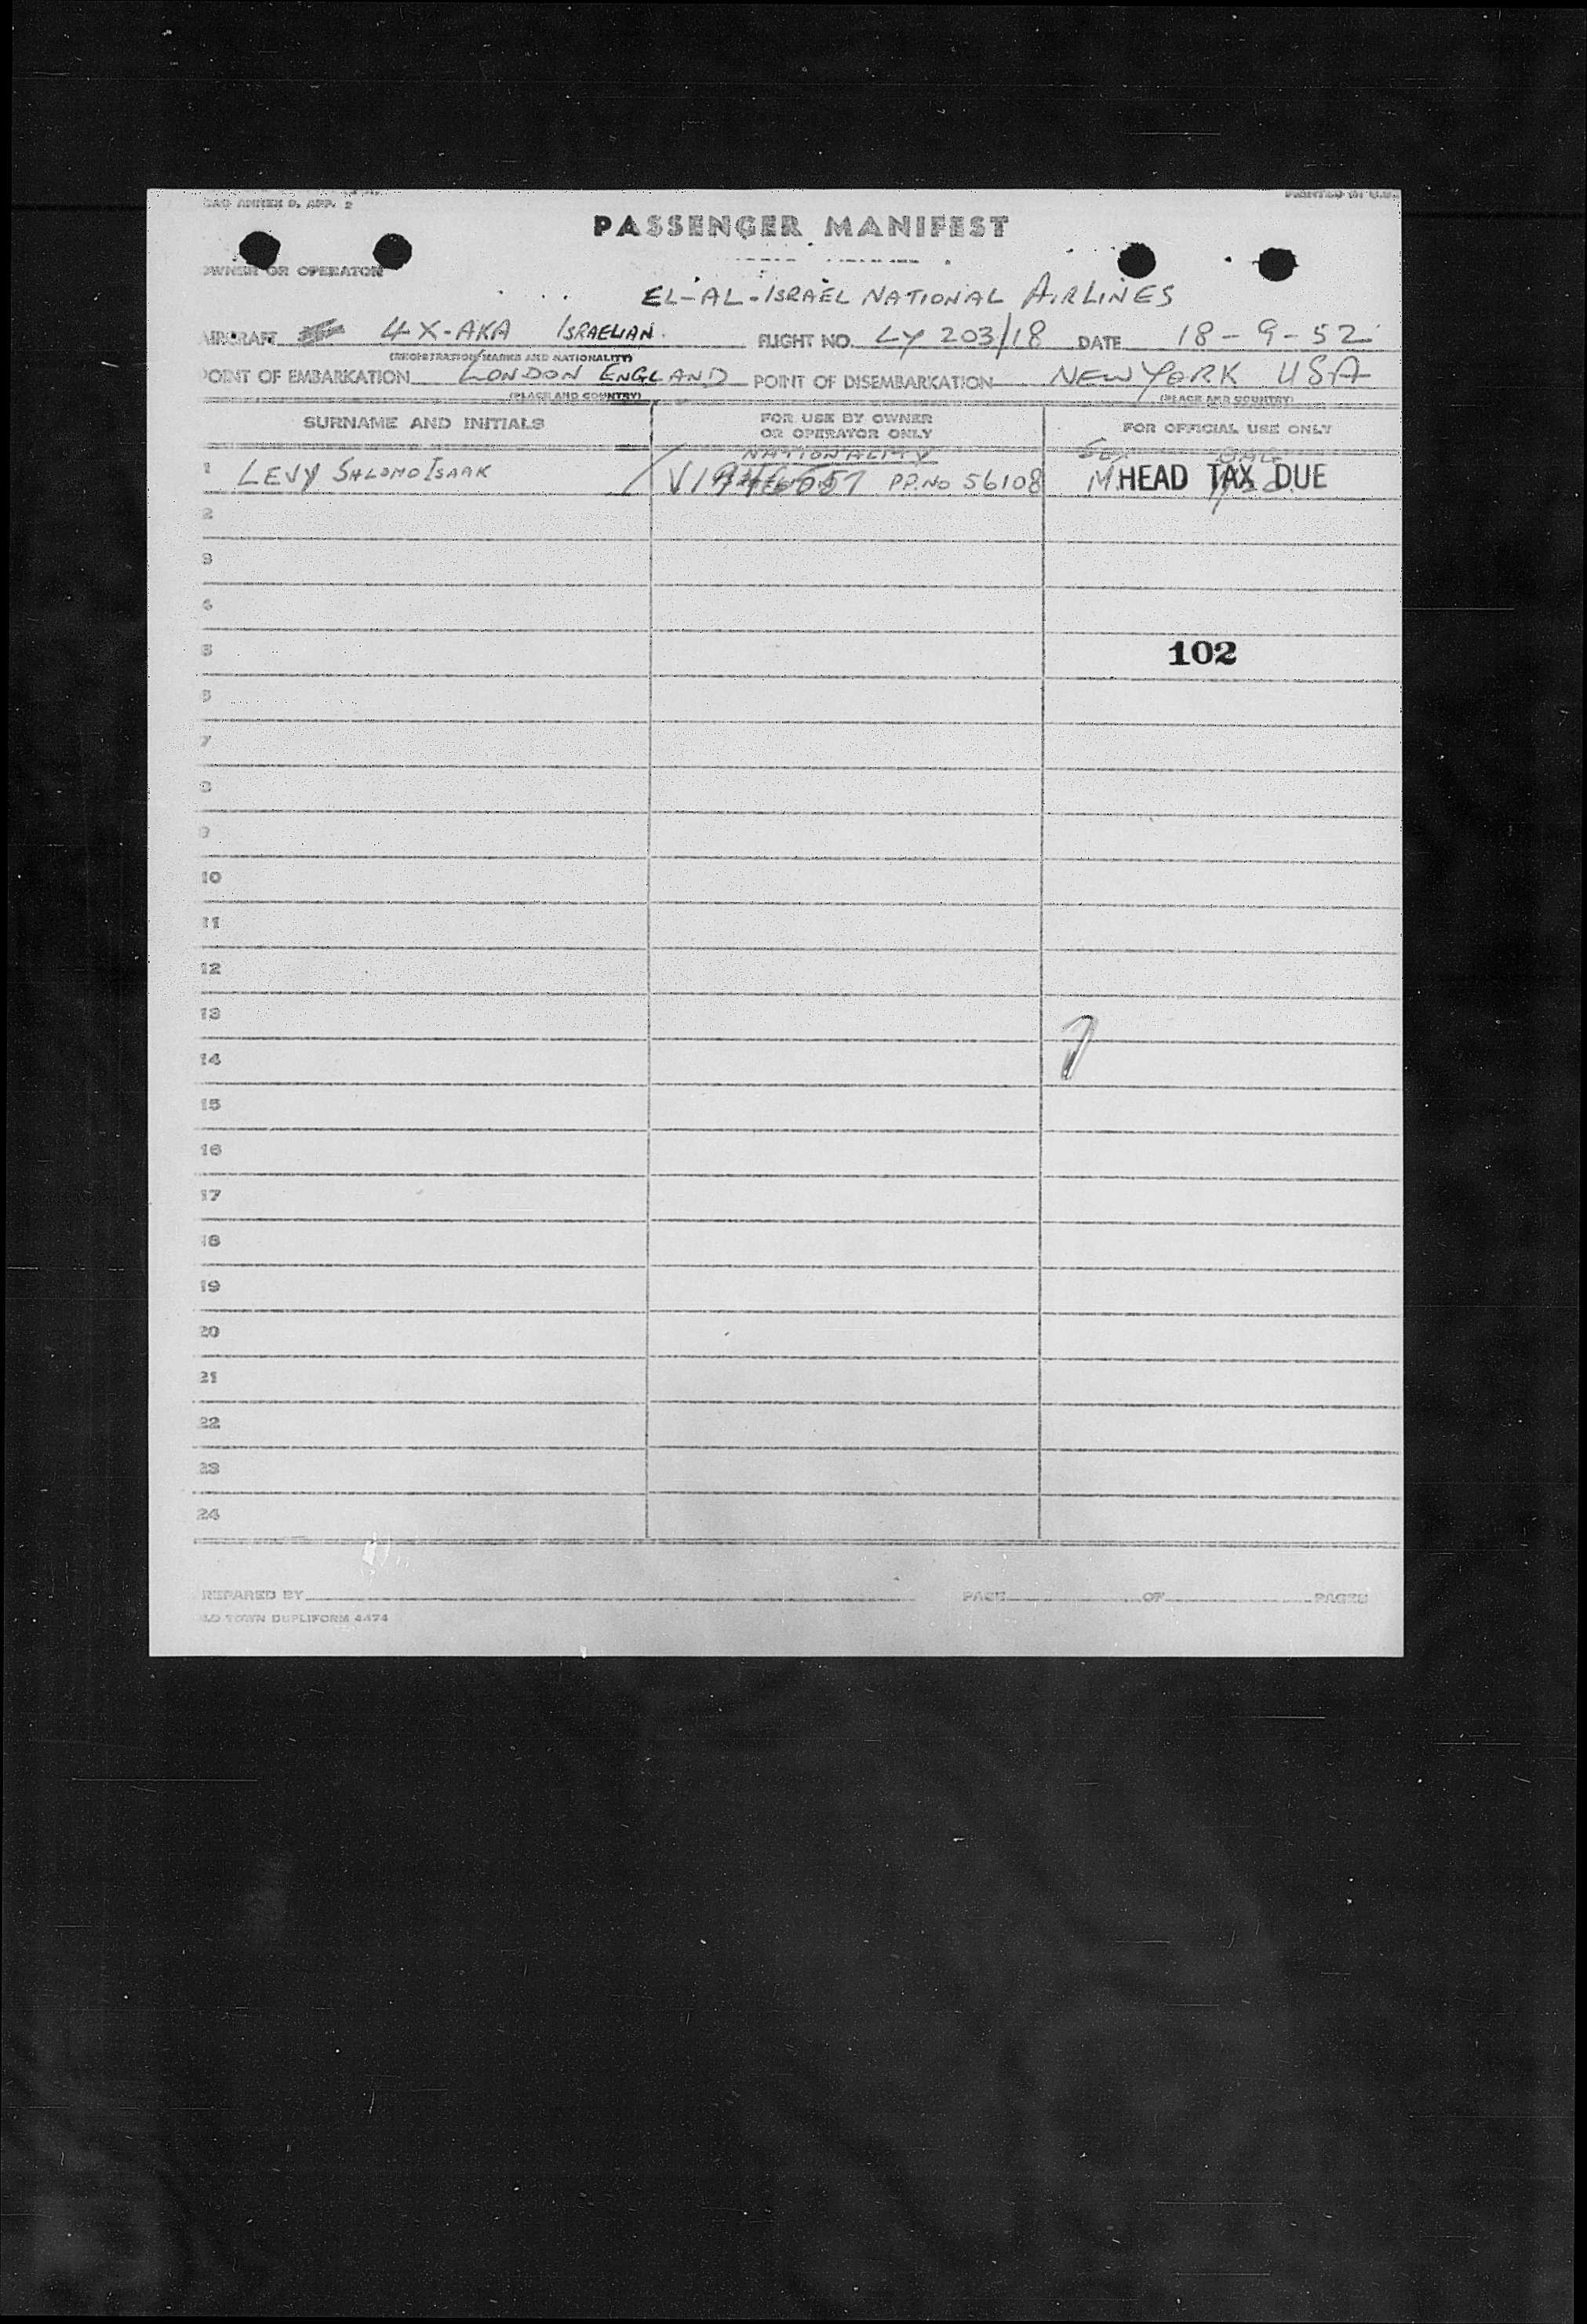 ICAO ANNEX 9, APP. 2
PRINTED IN U.S.
PASSENGER MANIFEST
OWNER OR OPERATOR
EL-AL-ISRAEL NATIONAL AIRLINES
AIRCRAFT 4X-AKA ISRAELIAN. FLIGHT NO. LY 203/18 DATE 18-9-52
(REGISTRATION MARKS AND NATIONALITY)
POINT OF EMBARKATION LONDON ENGLAND POINT OF DISEMBARKATION NEW YORK USA
(PLACE AND COUNTRY) (PLACE AND COUNTRY)
SURNAME AND INITIALS FOR USE BY OWNER OR OPERATOR ONLY FOR OFFICIAL USE ONLY
NATIONALITY SEX
1 LEVY SHLOMO ISAAK PP.NO 56108 M. HEAD TAX DUE
2
3
4
5 102
6
7
8
9
10
11
12
13
14
15
16
17
18
19
20
21
22
23
24
PREPARED BY PAGE OF PAGES
OLD TOWN DUPLIFORM 4474